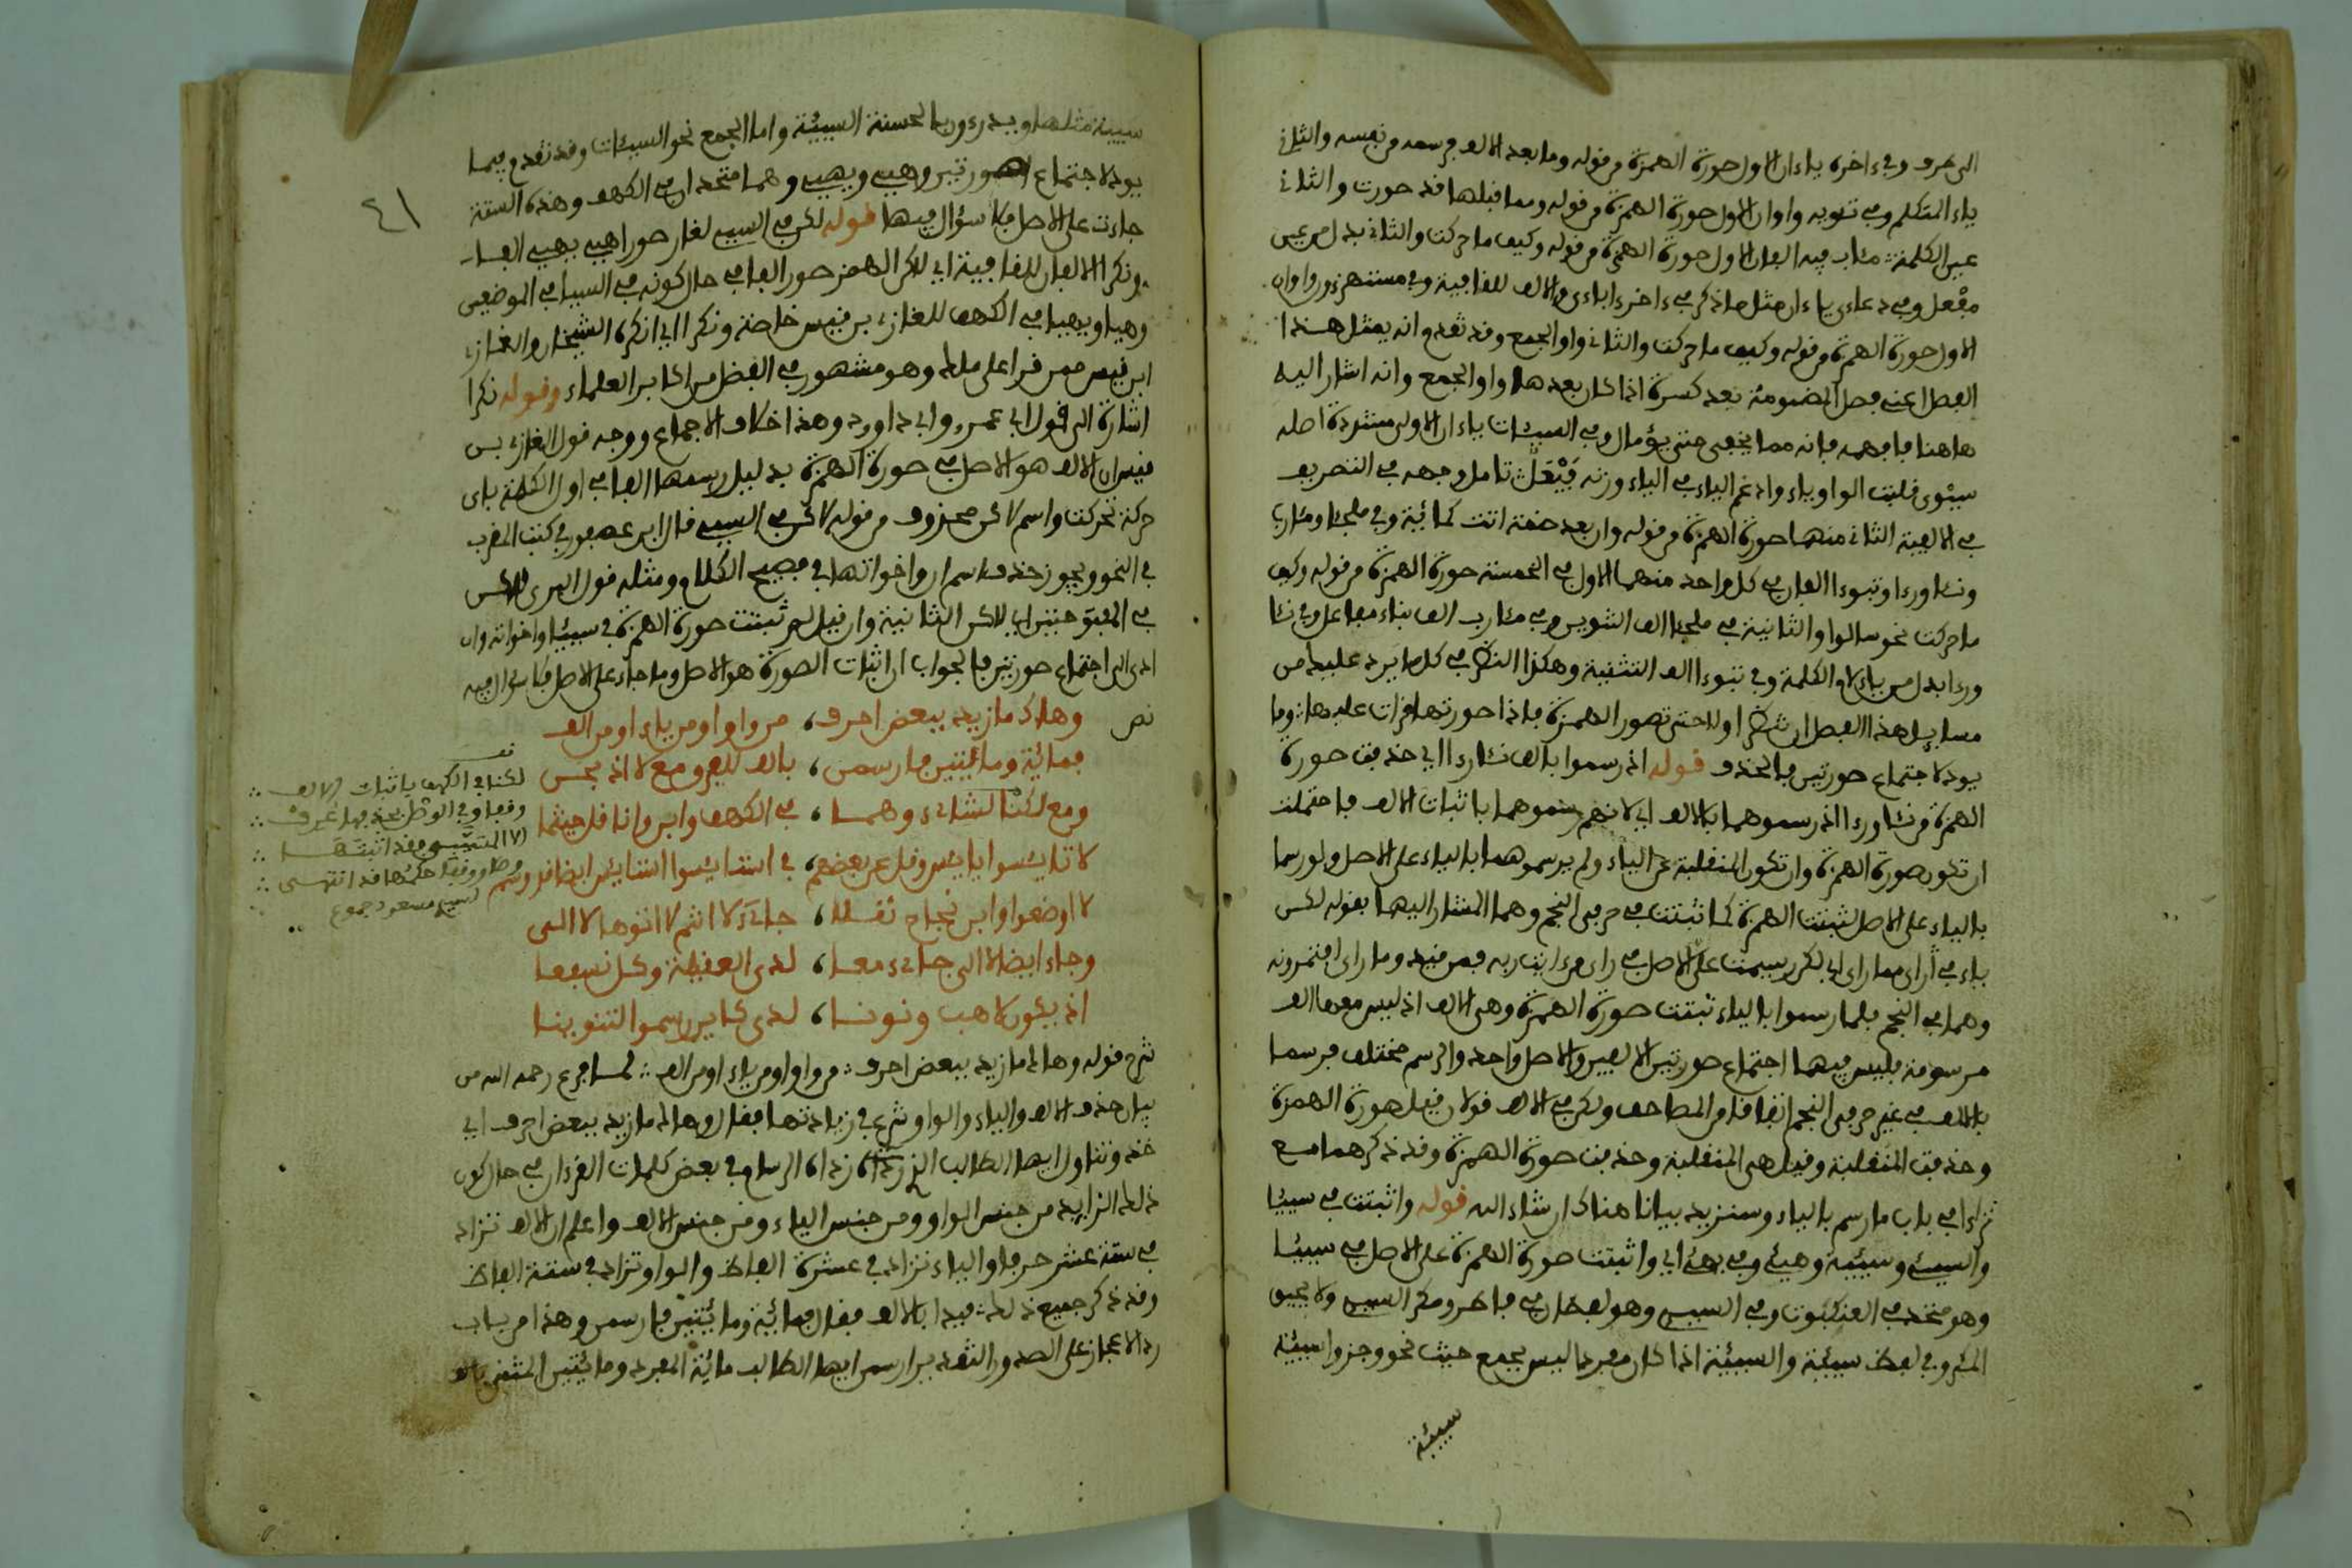 الى طرف وفي ءاخره ياءان الاول صورة الهمزة من قوله وما بعد الالف فرسمه من نفسه والثاني
ياء المتكلم وفي تئويه واوان الاول صورة الهمزة من قوله وما قبلها قد صورت والثاني
عين الكلمة مئاب فيه الفان الاول صورة الهمزة من قوله وكيف ما حركت والثاني بدل من عين
مفعل وفي دعاءى ياءان مثل ما ذكر في ءاخر ءاباءى والالف للقافية وفي مستهزءون واوان
الاول صورة الهمزة من قوله وكيف ما حركت والثاني واو الجمع وقد تقدم انه يمثل هذا
الفصل اعني فصل المضمومة بعد كسرة اذا كان بعدها واو الجمع وانه اشار اليه
هاهنا فافهمه فانه مما يخفى حتى يؤمال وفي السيئات ياءان الاولى مشددة اصله
سيوئ قلبت الواو ياء وادغم الياء في الياء وزنه فيعل تامل وجهه في التصريف
في الالفية الثاني منهما صورة الهمزة من قوله وان بعد ضمة اتت كمائية وفي ملجئا ومئارب
ونئا ورءا وتبوءا الفان في كل واحد منهما الاول في الخمسة صورة الهمزة من قوله وكيف
ما حركت نحو سالوا والثانية في ملجئا الف التنوين وفي مئارب الف بناء مفاعل وفي نئا
ورءا بدل من ياء لام الكلمة وفي تبوءا الف التثنية وهكذا النظر في كل ما يرد عليك من
مسايل هذا الفصل ان تنظر اولا حتى تصور الهمزة فاذا صورتها قرات عليها وما
يودي لاجتماع صورتين فالحذف قوله اذ رسموا بالف نئا رءا اي حذفت صورة
الهمزة من نئا ورءا اذ رسموهما بالالف اي لانهم رسموهما باثبات الالف فاحتملت
ان تكون صورة الهمزة وان تكون المنقلبة عن الياء ولم يرسموهما بالياء على الاصل ولو رسما
بالياء على الاصل لثبتت الهمزة كما ثبتت في حرفى النجم وهما المشار اليهما بقوله لكن
ياء في رأى مما راى اي لكن رسمت على الاصل في راى من ءايت ربه فمن قيده وما راى افتمرونه
وهما في النجم فلما رسموا بالياء ثبتت صورة الهمزة وهى الالف اذ ليس معها الف
مرسومة فليس فيهما اجتماع صورتين الالفين والاصل واحد والرسم مختلف فرسما
بالالف في غير حرفى النجم اتفاقا من المصاحف ولكن في الالف قولان قيل صورة الهمزة
وحذفت المنقلبة وقيل هى المنقلبة وحذفت صورة الهمزة وقد ذكرهما مع
تراءا في باب ما رسم بالياء وسنزيد بيانا هناك ان شاء الله قوله واثبتت في سيئا
والسيئ وسيئة وهيئ وفي يهيئ اي واثبتت صورة الهمزة على الاصل في سيئا
وهو متحد في العنكبوت وفي السيئ وهو لفظان في فاطر ومكر السيئ ولا يحيق
المكر وفي لفظ سيئة والسيئة اذا كان مفردا ليس بجمع حيث نحو وجزؤا سيئة
سيئة
٤١
سيئة مثلها ويدرءون بالحسنة السيئة واما الجمع نحو السيئات وقد تقدم فيما
يودي لاجتماع الصورتين وهيئ ويهيئ وهما متحدان في الكهف وهذه الستة
جاءت على الاصل فلا سؤال فيها قوله لكن في السيئ لغاز صورا هيئ يهيئ الفا
ونكرا الالفان للقافية اي لكن الهمز صور الفا في حال كونه في السيا في الموضعين
وهيا ويهيا في الكهف للغازي بن قيس خاصة ونكرا اي انكره الشيخان والغازي
ابن قيس ممن قرا على ملك وهو مشهور في الفضل من اكابر العلماء وقوله نكرا
اشارة الى قول ابي عمرو وابي داوود وهذا خلاف الاجماع ووجه قول الغازي بن
قيس ان الالف هو الاصل في صورة الهمزة بدليل رسمها الفا في اول الكلمة باي
حركة تحركت واسم لكن محذوف من قوله لكن في السيئ قال ابن عصفور في كتب المقرب
في النحو ويجوز حذف اسم ان واخواتها في فصيح الكلام ومثله قول البري للاكس
في المفتوحتين اي لكن الثانية وان قيل لم ثبتت صورة الهمزة في سيئا واخواته وان
ادى الى اجتماع صورتين فالجواب ان اثبات الصورة هو الاصل وما جاء على الاصل فلا سؤال فيه
نص وهاك ما زيد ببعض احرف، من واو او من ياء او من الف
فمائة ومائتين فارسمن، بالف للفرق مع لا اذبحن
ومع لكنا لشائء وهما، في الكهف وابن وانا قل حيثما
لا تايئسوا يايئس وقل عن بعضهم، في استايئسوا استايئس ايضا قد رسم
لا اوضعوا وابن نجاح نقلا، جاىء لا انتم لا اتوها لا الى
وجاء ايضا لا الى جاىء معا، لدى العقيلة وكل نسفعا
اذ يكون لاهب ونونا، لدى كاين رسموا التنوينا
لكنا في الكهف باثبات الالف
وقفا وفي الوصل بحذفها عرف
فقد اثبتها
وصلا ووقفا حكمها قد انتهى
لسيدي مسعود جموع
شرح قوله وهاك ما زيد ببعض احرف من واو او من ياء او من الف لما فرغ رحمه الله من
بيان حذف الالف والياء والواو شرع في زيادتها فقال وهاك ما زيد ببعض احرف اي
خذ وتناول ايها الطالب الذي زاده الرسام في بعض كلمات القرءان في حال كون
ذلك الزايد من جنس الواو ومن جنس الياء ومن جنس الالف واعلم ان الالف تزاد
في ستة عشر حرفا والياء تزاد في عشرة الفاظ والواو تزاد في ستة الفاظ
وقد ذكر جميع ذلك فبدا بالالف فقال فمائة ومائتين فارسمن وهذا من باب
رد الاعجاز على الصدور التقدير ارسم ايها الطالب مائة المفرد ومائتين المثنى بالف